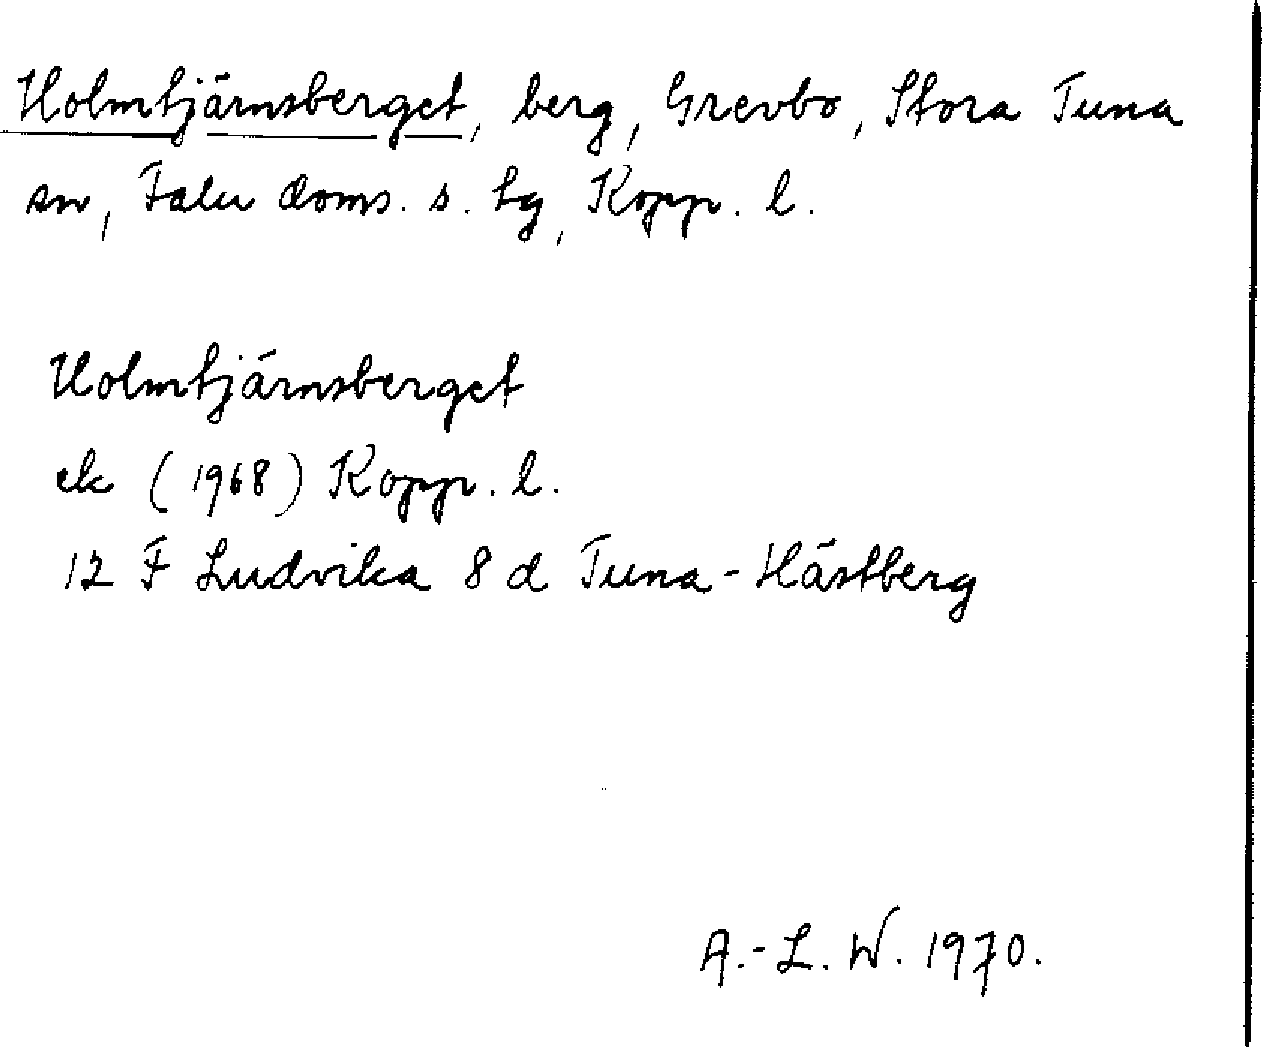 Holmtjärnsberget, berg, Grevbo, Stora Tuna
sn, Falu doms. s. tg, Kopp. l.
Holmtjärnsberget
ek (1968) Kopp. l.
12 F Ludvika 8 d Tuna-Hästberg
A.-L. W. 1970.